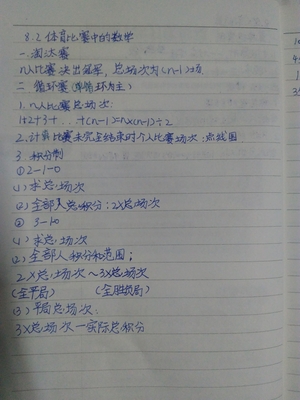 8.2 体育比赛中的数学
一.淘汰赛
n人比赛 决出冠军, 总场次为(n-1)场
二 循环赛(单循环为主)
1. n人比赛总场次:
1+2+3+...+(n-1)=n×(n-1)÷2
2.计算比赛未完全结束时个人比赛场次:点线图
3. 积分制
① 2-1-0
(1) 求总场次
(2) 全部人总积分:2×总场次
② 3-1-0
(1) 求总场次
(2) 全部人积分和范围:
2×总场次~3×总场次
(全平局) (全胜负局)
(3) 平局总场次:
3×总场次-实际总积分